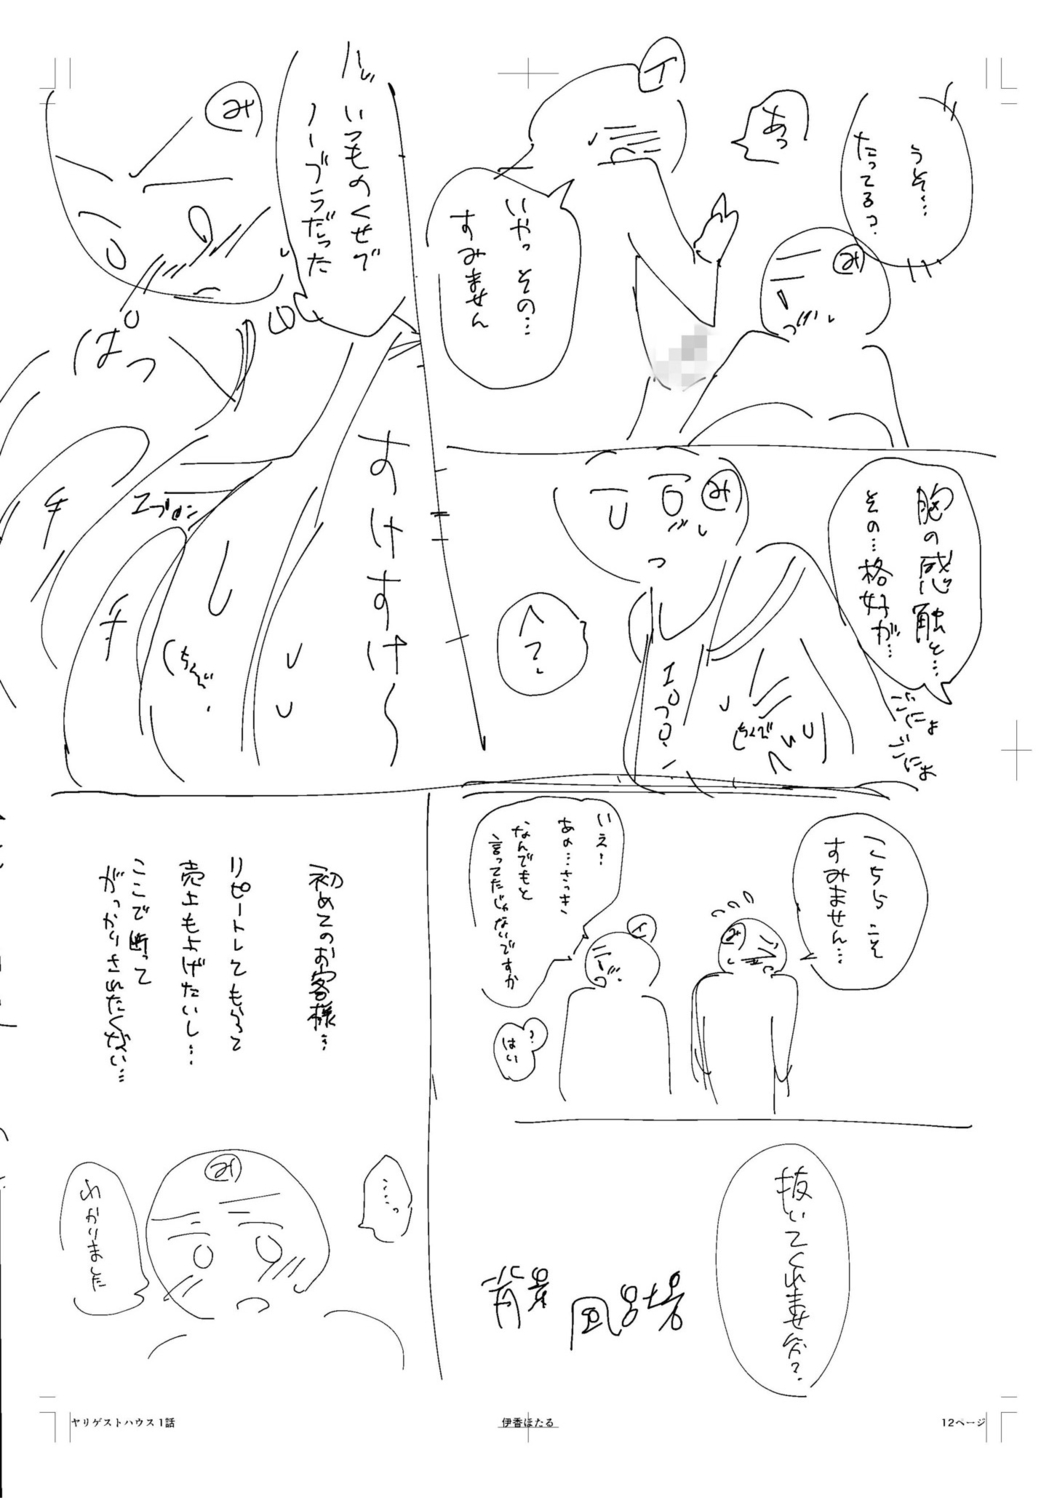 うそ…
たってる?
み
あっ
イ
いやっ その…
すみません
いつものくせで
ノーブラだった
み
ぱっ
すけすけ〜
エプロン
チ
チ
ちくび
胸の感触と…
その…格好が…
ごにょ
ごにょ
み
へ?
エプロン
ちくび
こちらこそ
すみません…
み
イ
いえ!
あの…さっき、
なんでもと
言ってたじゃないですか
はい
?
抜いてくれませんか?
背景
風呂場
初めてのお客様…
リピートしてもらって
売上も上げたいし…
ここで断って
がっかりされたくない…
…っ
み
わかりました
ヤリゲストハウス1話
伊香ほたる
12ページ